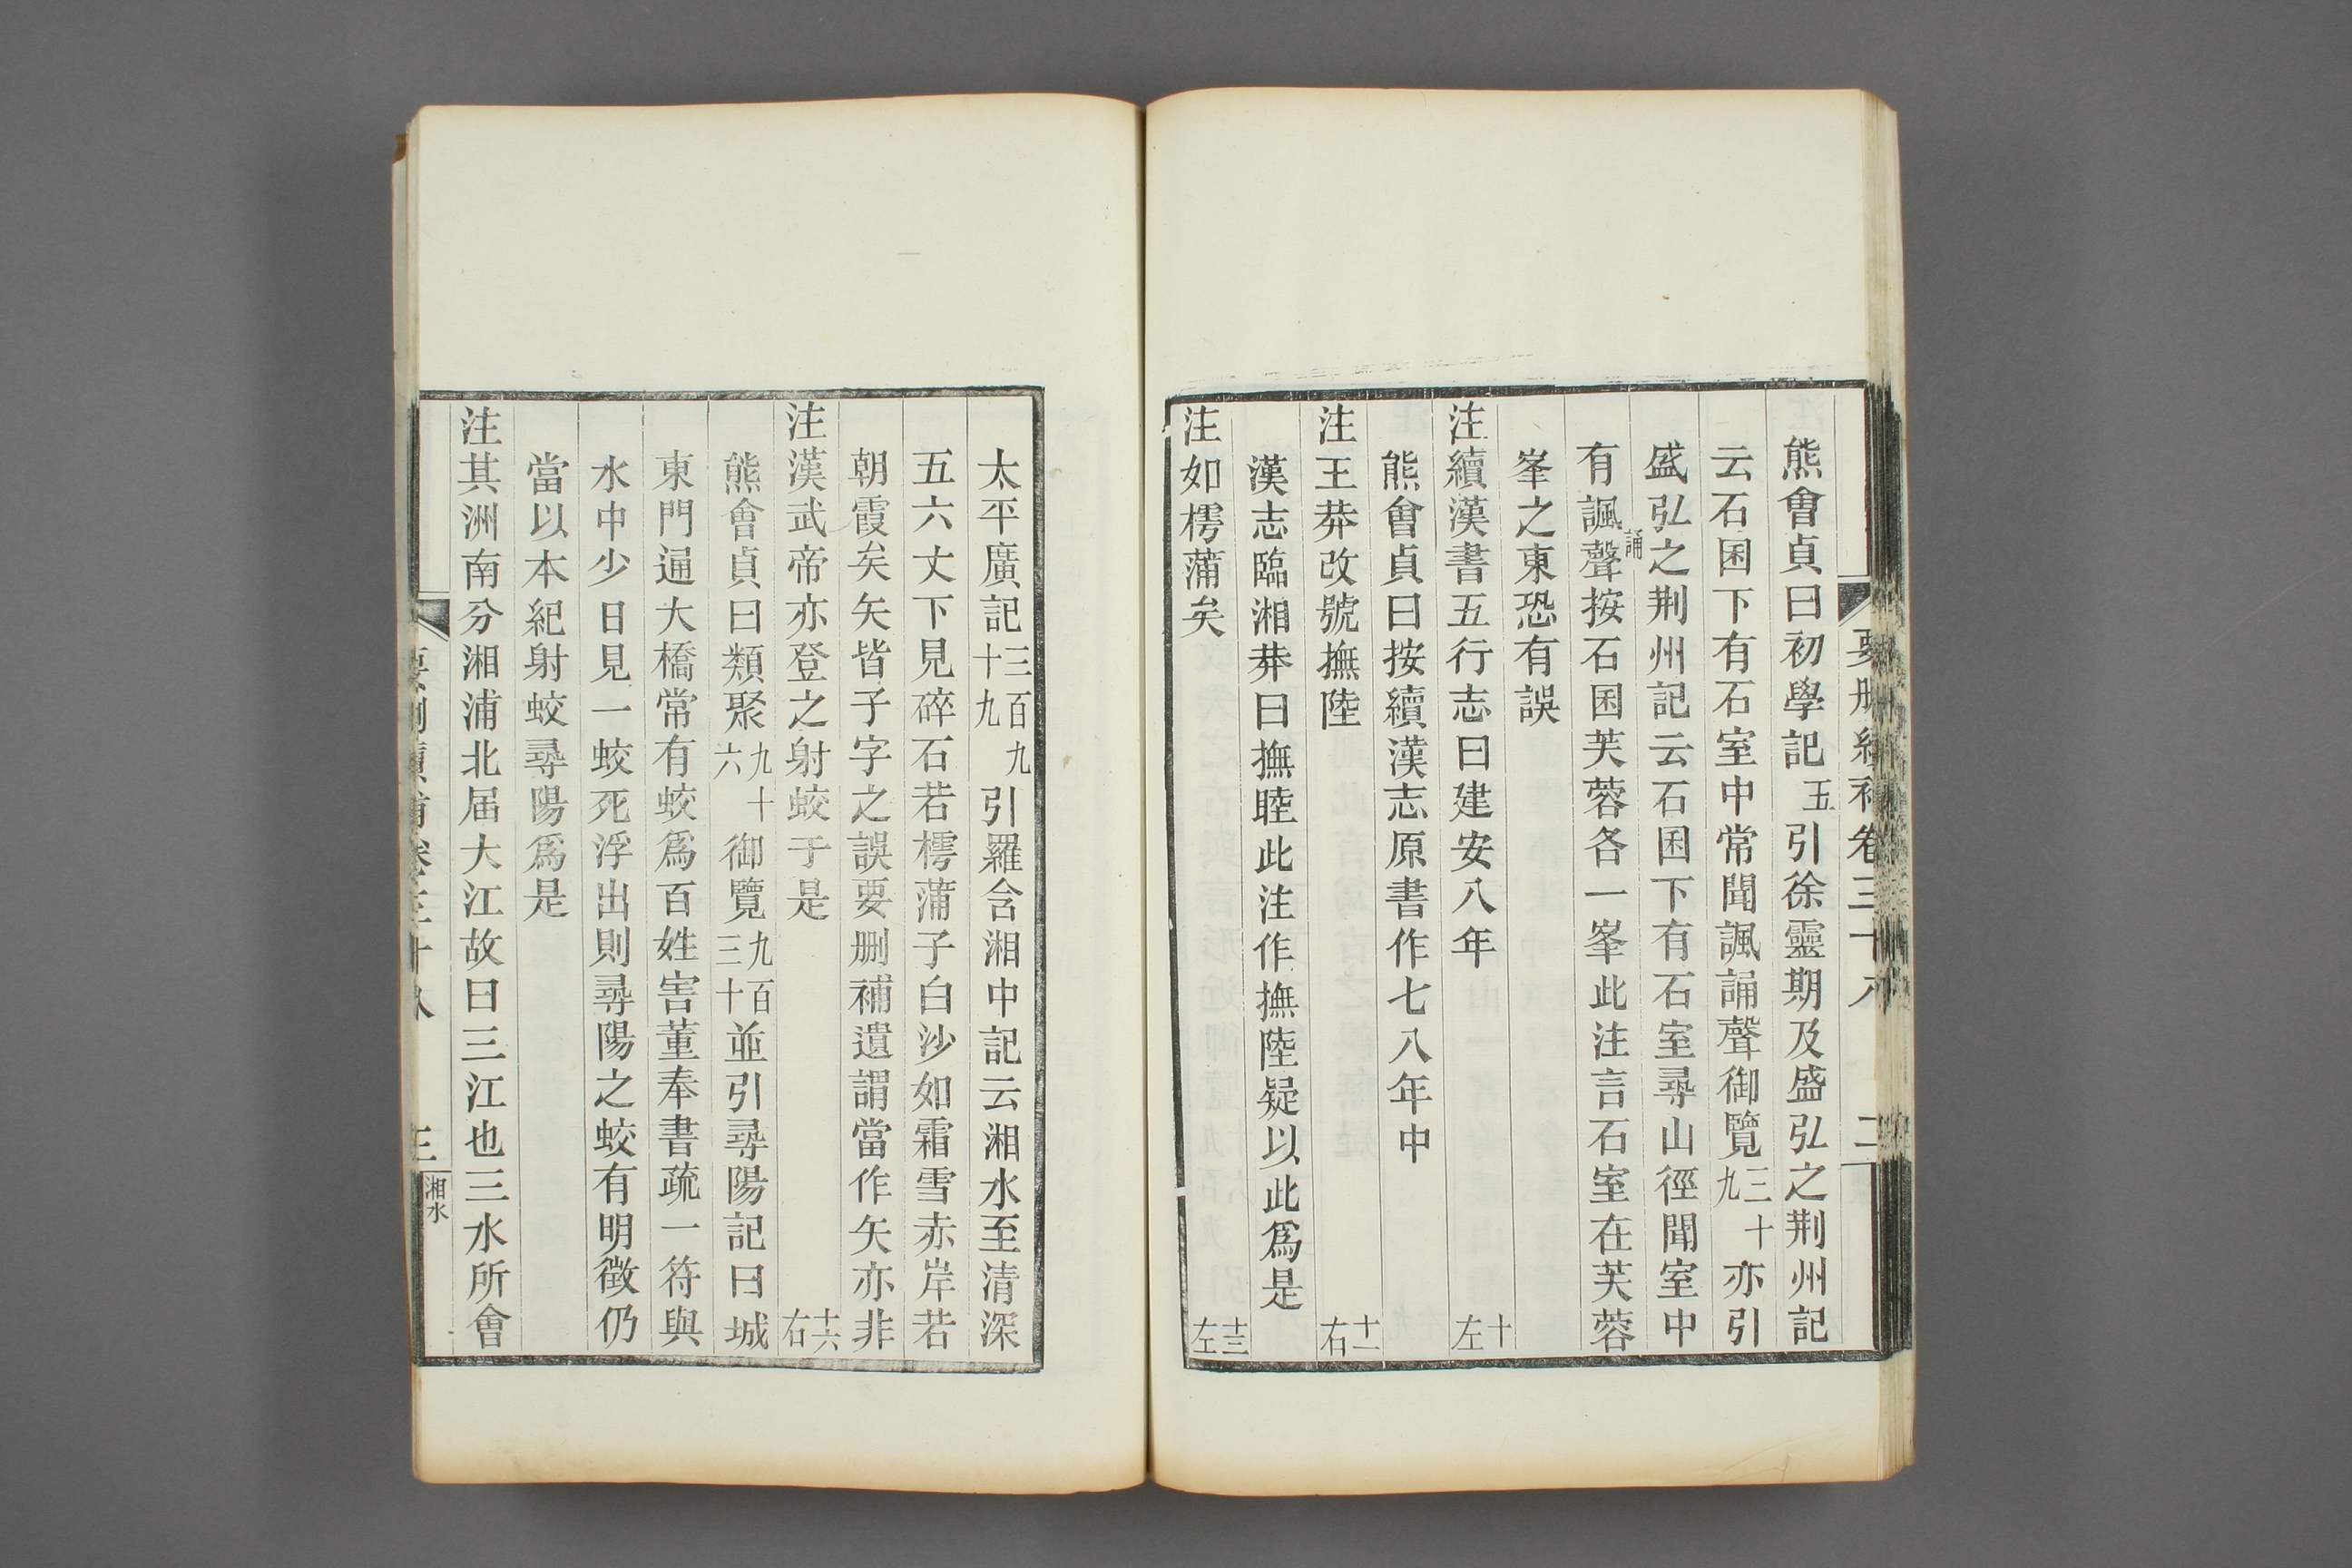 熊會貞曰初學記五引徐靈期及盛弘之荆州記
云石囷下有石室中常聞諷誦聲御覽三十九亦引
盛弘之荆州記云石囷下有石室尋山徑聞室中
有諷誦聲按石囷芙蓉各一峯此注言石室在芙蓉
峯之東恐有誤
注續漢書五行志曰建安八年十左
熊會貞曰按續漢志原書作七八年中
注王莽改號撫陸十一右
漢志臨湘莽曰撫睦此注作撫陸疑以此爲是
注如樗蒲矣十三左
太平廣記三百九十九引羅含湘中記云湘水至清深
五六丈下見碎石若樗蒲子白沙如霜雪赤岸若
朝霞矣矢皆子字之誤要删補遺謂當作矢亦非
注漢武帝亦登之射蛟于是十六右
熊會貞曰類聚九十六御覽九百三十並引尋陽記曰城
東門通大橋常有蛟爲百姓害董奉書疏一符與
水中少日見一蛟死浮出則尋陽之蛟有明徵仍
當以本紀射蛟尋陽爲是
注其洲南分湘浦北届大江故曰三江也三水所會
三
湘水